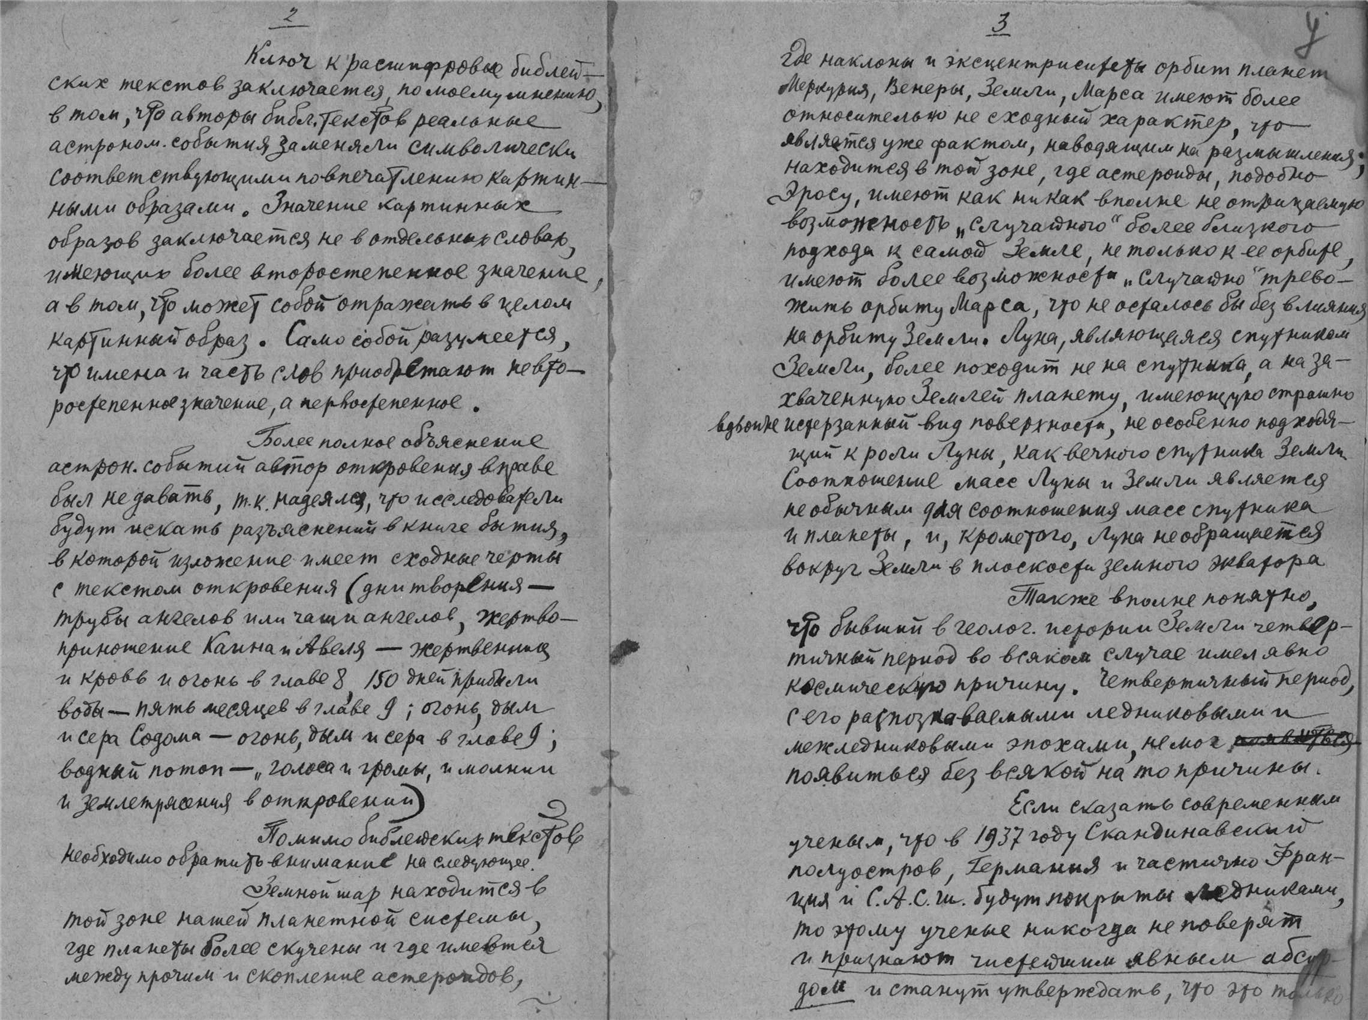 2
Ключ к расшифровке библей-
ских текстов заключается, по моему мнению,
в том, что авторы библ. текстов реальные
астроном. события заменяли символически
соответствующими по впечатлению картин-
ными образами. Значение картинных
образов заключается не в отдельных словах,
имеющих более второстепенное значение,
а в том, что может собой отражать в целом
картинный образ. Само собой разумеется,
что имена и часть слов приобретают не вто-
ростепенное значение, а первостепенное.
Более полное объяснение
астрон. событий автор откровения вправе
был не давать, т.к. надеялся, что исследователи
будут искать разъяснений в книге бытия,
в которой изложение имеет сходные черты
с текстом откровения (дни творения —
трубы ангелов или чаши ангелов, жертво-
приношение Каина и Авеля — жертвенник
и кровь и огонь в главе 8, 150 дней прибыли
воды — пять месяцев в главе 9; огонь, дым
и сера Содома — огонь, дым и сера в главе 9;
водный потоп — „голоса и громы, и молнии
и землетрясения в откровении)
Помимо библейских текстов
необходимо обратить внимание на следующее.
Земной шар находится в
той зоне нашей планетной системы,
где планеты более скучены и где имеются
между прочим и скопление астероидов,
3
У
где наклоны и эксцентриситеты орбит планет
Меркурия, Венеры, Земли, Марса имеют более
относительно не сходный характер, что
является уже фактом, наводящим на размышления;
находится в той зоне, где астероиды, подобно
Эросу, имеют как никак вполне не отрицаемую
возможность „случайного" более близкого
подхода к самой Земле, не только к ее орбите,
имеют более возможности „случайно" трево-
жить орбиту Марса, что не осталось бы без влияния
на орбиту Земли. Луна, являющаяся спутником
Земли, более походит не на спутника, а на за-
хваченную Землей планету, имеющую страшно
вдвойне истерзанный вид поверхности, не особенно подходя-
щий к роли Луны, как вечного спутника Земли
Соотношение масс Луны и Земли является
необычным для соотношения масс спутника
и планеты, и, кроме того, Луна не обращается
вокруг Земли в плоскости земного экватора
Также вполне понятно,
что бывший в геолог. истории Земли четвер-
тичный период во всяком случае имел явно
космическую причину. Четвертичный период,
с его распознаваемыми ледниковыми и
межледниковыми эпохами, не мог появиться
появиться без всякой на то причины.
Если сказать современным
ученым, что в 1937 году Скандинавский
полуостров, Германия и частично Фран-
ция и С.А.С.Ш. будут покрыты ледниками,
то этому ученые никогда не поверят
и признают чистейшим явным абсур-
дом и станут утверждать, что это только